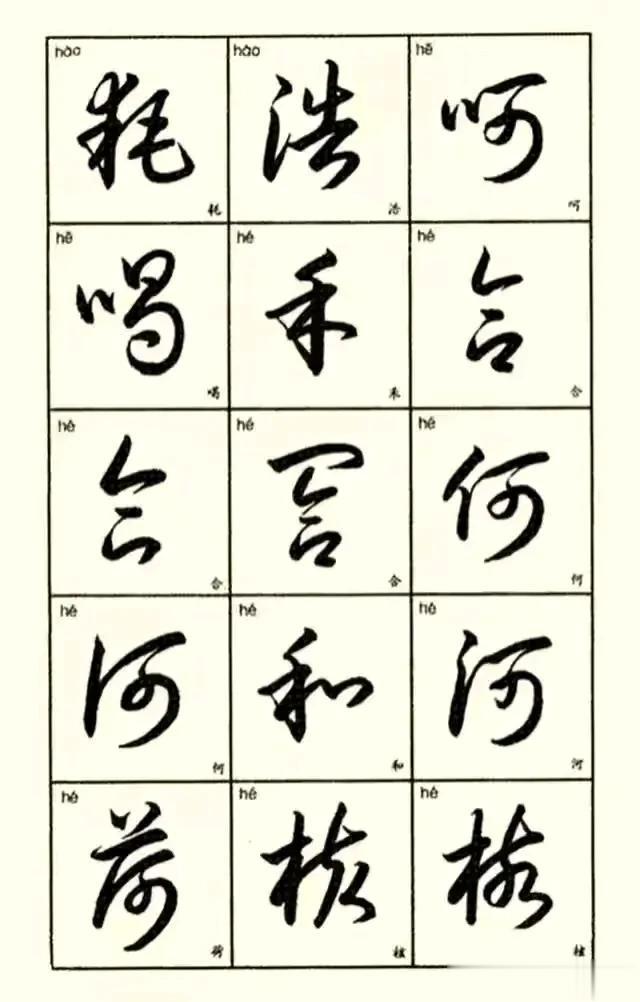 hào hào hē
耗 浩 呵
耗 浩 呵
hē hé hé
喝 禾 合
喝 禾 合
hé hé hé
合 合 何
合 合 何
hé hé hé
何 和 河
何 和 河
hé hé hé
荷 核 核
荷 核 核